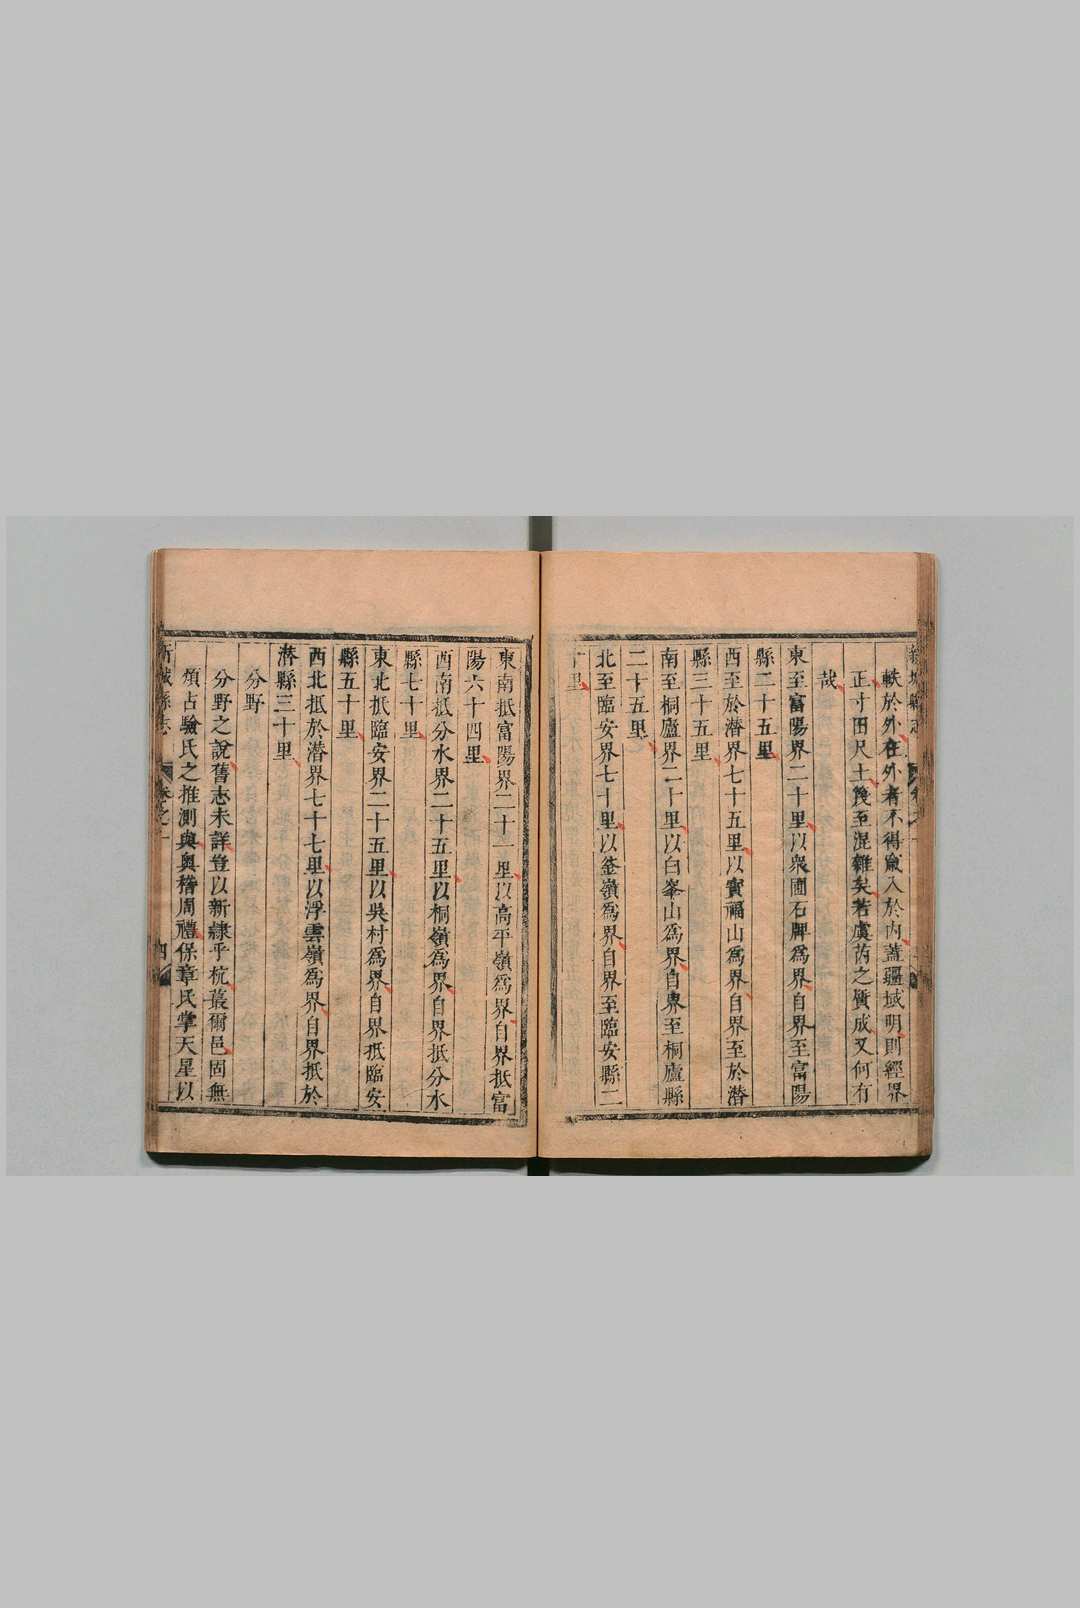 軼於外在外者不得窺入於內蓋疆域明則經界
正寸田尺土幾至混雜矣若虞芮之質成又何有
哉
東至富陽界二十里以衆圃石牌爲界自界至富陽
縣二十五里
西至於潛界七十五里以寶福山爲界自界至於潛
縣三十五里
南至桐廬界二十里以白峯山爲界自界至桐廬縣
二十五里
北至臨安界七十里以釜嶺爲界自界至臨安縣二
十里
東南抵富陽界二十一里以高平嶺爲界自界抵富
陽六十四里
西南抵分水界二十五里以桐嶺爲界自界抵分水
縣七十里
東北抵臨安界二十五里以吳村爲界自界抵臨安
縣五十里
西北抵於潛界七十七里以浮雲嶺爲界自界抵於
潛縣三十里
分野
分野之說舊志未詳豈以新隷乎杭蕞爾邑固無
煩占驗氏之推測與奥稽周禮保章氏掌天星以
新城縣志 卷之一 四